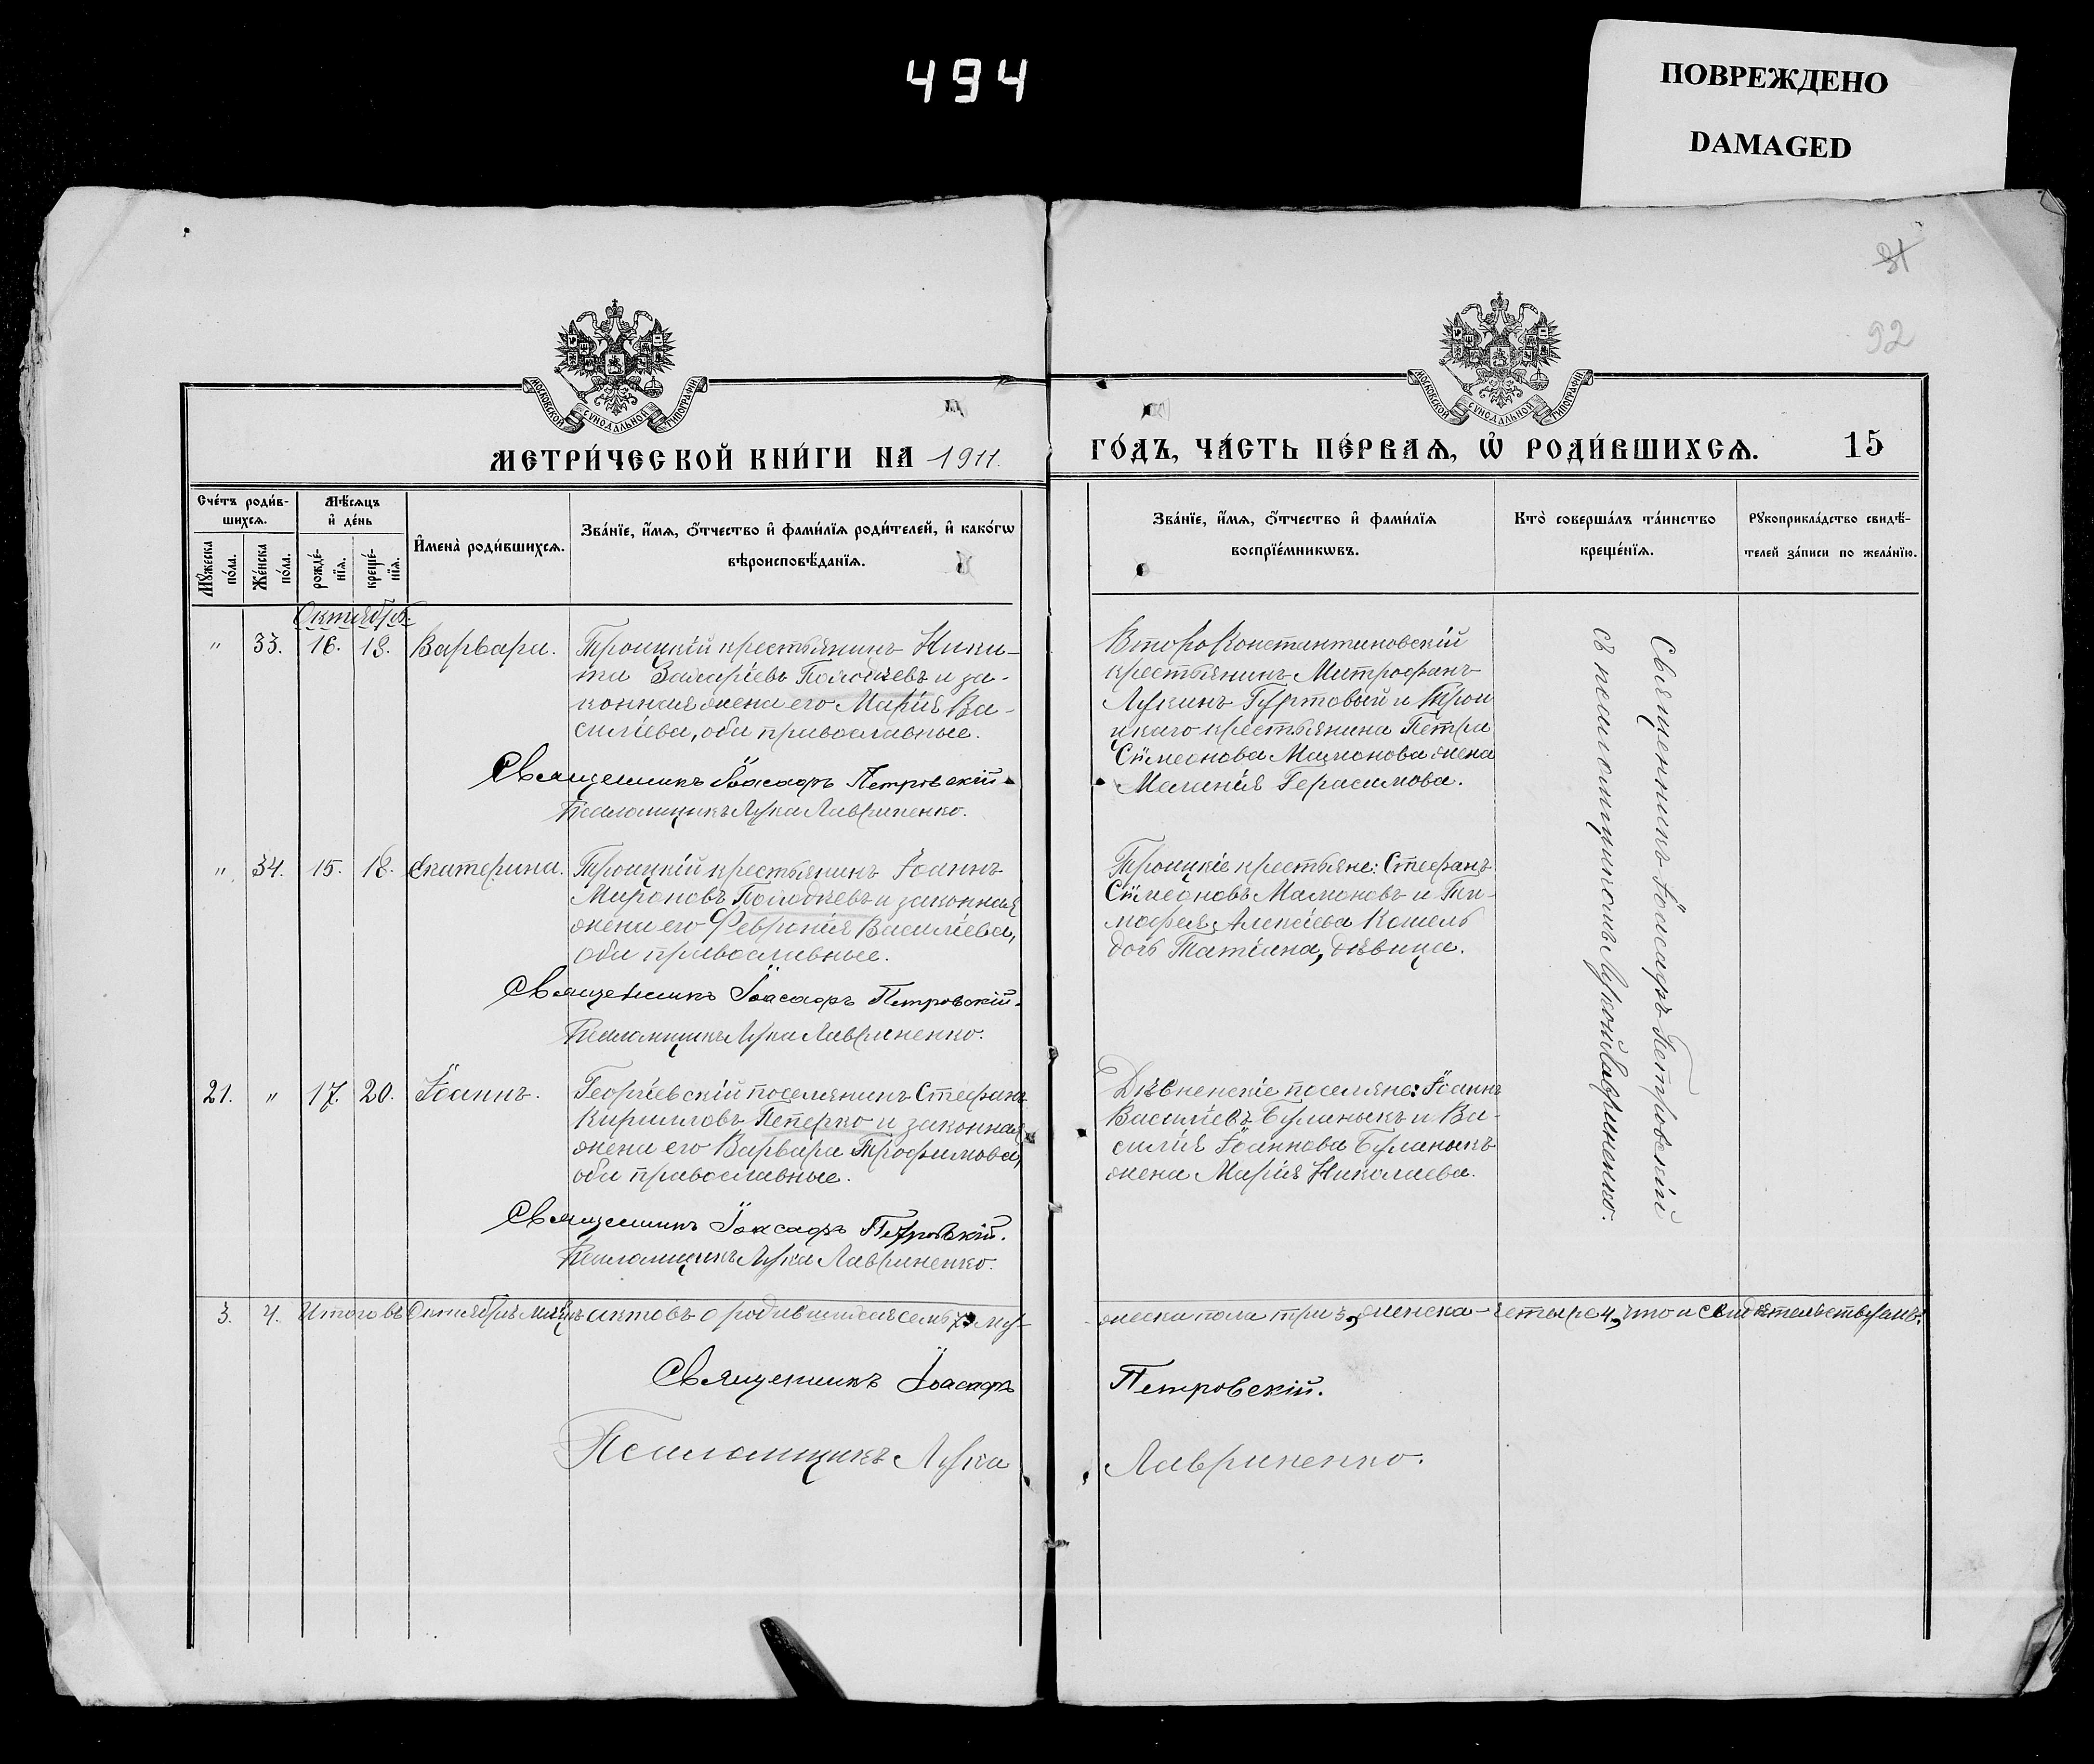 494
ПОВРЕЖДЕНО
DAMAGED
81
92
МОСКОВСКОЙ СѴНОДАЛЬНОЙ ТИПОГРАФІИ
МОСКОВСКОЙ СѴНОДАЛЬНОЙ ТИПОГРАФІИ
МЕТРИ́ЧЕСКОЙ КНИ́ГИ НА 1911.
ГО́ДЪ, ЧА́СТЬ ПЕ́РВАѦ, Ѽ РОДИ́ВШИХСѦ. 15
Сче́тъ роди́в-
шихсѧ.
Мꙋ́жеска по́ла.
Же́нска по́ла.
Мѣ́сѧцъ
и҆ де́нь
рожде́-
нїѧ.
креще́-
нїѧ.
И҆мена̀ роди́вшихсѧ.
Зва́нїе, и҆́мѧ, ѻ҆́тчество и҆ фами́лїѧ роди́телей, и҆ како́гѡ
вѣроисповѣ́данїѧ.
Зва́нїе, и҆́мѧ, ѻ҆́тчество и҆ фами́лїѧ
воспрїе́мникѡвъ.
Кто̀ соверша́лъ та́инство
креще́нїѧ.
Рꙋкоприкла́дство свидѣ́-
телей за́писи по жела́нїю.
Октябрь
" 33. 16. 18. Варвара.
Троицкій крестьянинъ Ники-
та Захаріевъ и за-
конная жена его Марія Ва-
силіева, оба православные.
Священникъ Іоасафъ Петровскій.
Псаломщикъ Лука Лавриненко.
Второконстантиновскій
крестьянинъ Митрофанъ
Лукинъ Гуртовый и Трои
цкаго крестьянина Петра
Сѵмеонова Мамонова жена
Меланія Герасимова.
" 34. 15. 18. Екатерина.
Троицкій крестьянинъ Іоаннъ
Мироновъ и законная
жена его Февронія Василіева,
оба православные.
Священникъ Іоасафъ Петровскій.
Псаломщикъ Лука Лавриненко.
Троицкіе крестьяне: Стефанъ
Сѵмеоновъ Мамоновъ и Ти-
мофея Алексіева Кошель
дочь Татіана, дѣвица.
21. " 17. 20. Іоаннъ.
Георгіевскій поселянинъ Стефанъ
Кирилловъ Пеперко и законная
жена его Варвара Трофимова,
оба православные.
Священникъ Іоасафъ Петровскій.
Псаломщикъ Лука Лавриненко.
Дѣвненскіе поселяне: Іоаннъ
Василіевъ Буланыкъ и Ва-
силія Іоаннова Буланыкъ
жена Марія Николаева.
Священникъ Іоасафъ Петровскій
съ псаломщикомъ Лукой Лавриненко.
3. 4. Итого въ Октябрѣ мѣсяцѣ актовъ о родившихся семь 7, му-
жеска пола три 3, женска - четыре 4, что и свидѣтельствуемъ:
Священникъ Іоасафъ
Петровскій.
Псаломщикъ Лука
Лавриненко.